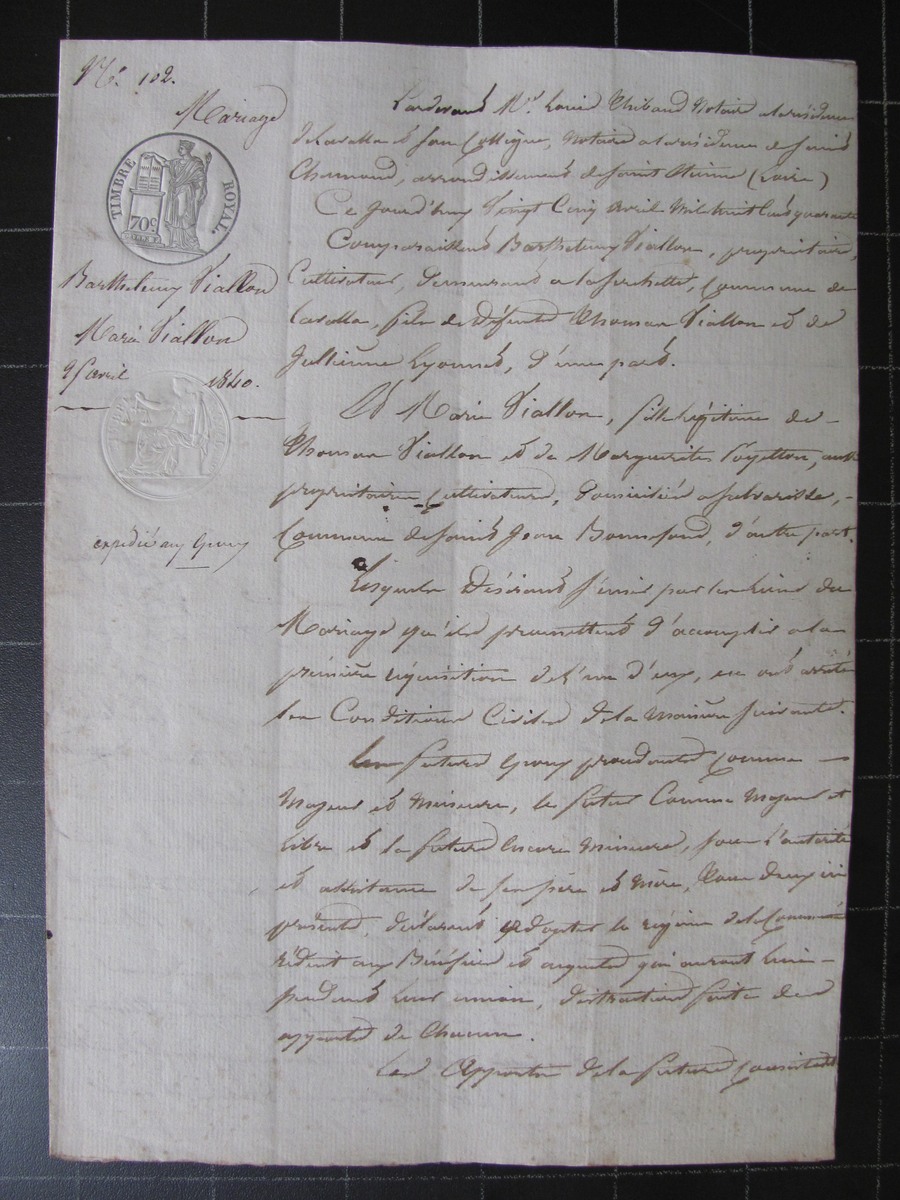 N.° 102.
Mariage
TIMBRE ROYAL.
70c
Barthelemy Viallon
Marie Viallon
25 avril 1840.
expédié aux Epoux
Pardevant M.e Louis Thibaud Notaire a la résidence
de Lavalla et son Collègue, Notaire a la résidence de Saint
Chamond, arrondissement de Saint Etienne (Loire)
Ce Jourd'huy Vingt Cinq Avril Mil huit Cent quarante
Comparaissent Barthelemy Viallon, propriétaire,
Cultivateur, demeurant a commune de
Lavalla, fils de défunt Thomas Viallon et de
Jullienne Lyonnet, d'une part.
Et Marie Viallon, fille légitime de
Thomas Viallon et de Marguerite
propriétaires Cultivateurs, domiciliés a
Commune de Saint Jean Bonnefond, d'autre part.
Lesquels désirant s'unir par les liens du
Mariage qu'ils promettent d'accomplir a la
première réquisition de l'un d'eux, en ont arrêté
les Conditions Civiles de la manière suivante.
Les futurs Epoux procédants comme
Majeur et Mineure, le futur Comme Majeur et
libre et la future Encore Mineure, sous l'autorité
et assistance de ses père et mère, tous deux ici
présents, déclarent adopter le régime de la Communauté
réduit aux Bénéfices et acquets qui auront lieu
pendant leur union, distraction faite des
apports de Chacun.
Les Apports de la future Consistent